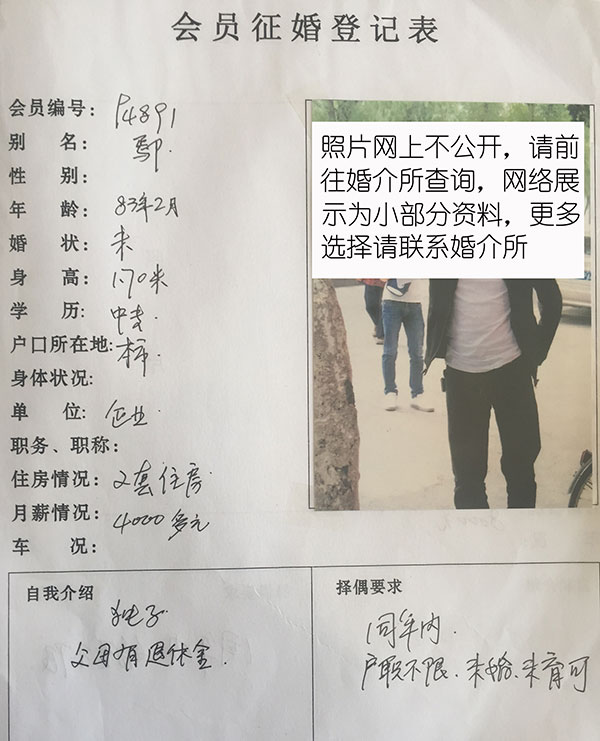 会员征婚登记表
会员编号：P4891
别 名：鄢
性 别：
年 龄：83年2月
婚 状：未
身 高：1.70米
学 历：中专
户口所在地：本市
身体状况：
单 位：企业
职务、职称：
住房情况：2套住房
月薪情况：4000多元
车 况：
照片网上不公开，请前
往婚介所查询，网络展
示为小部分资料，更多
选择请联系婚介所
自我介绍
独子
父母有退休金.
择偶要求
同年内.
户职不限.未婚.未育可